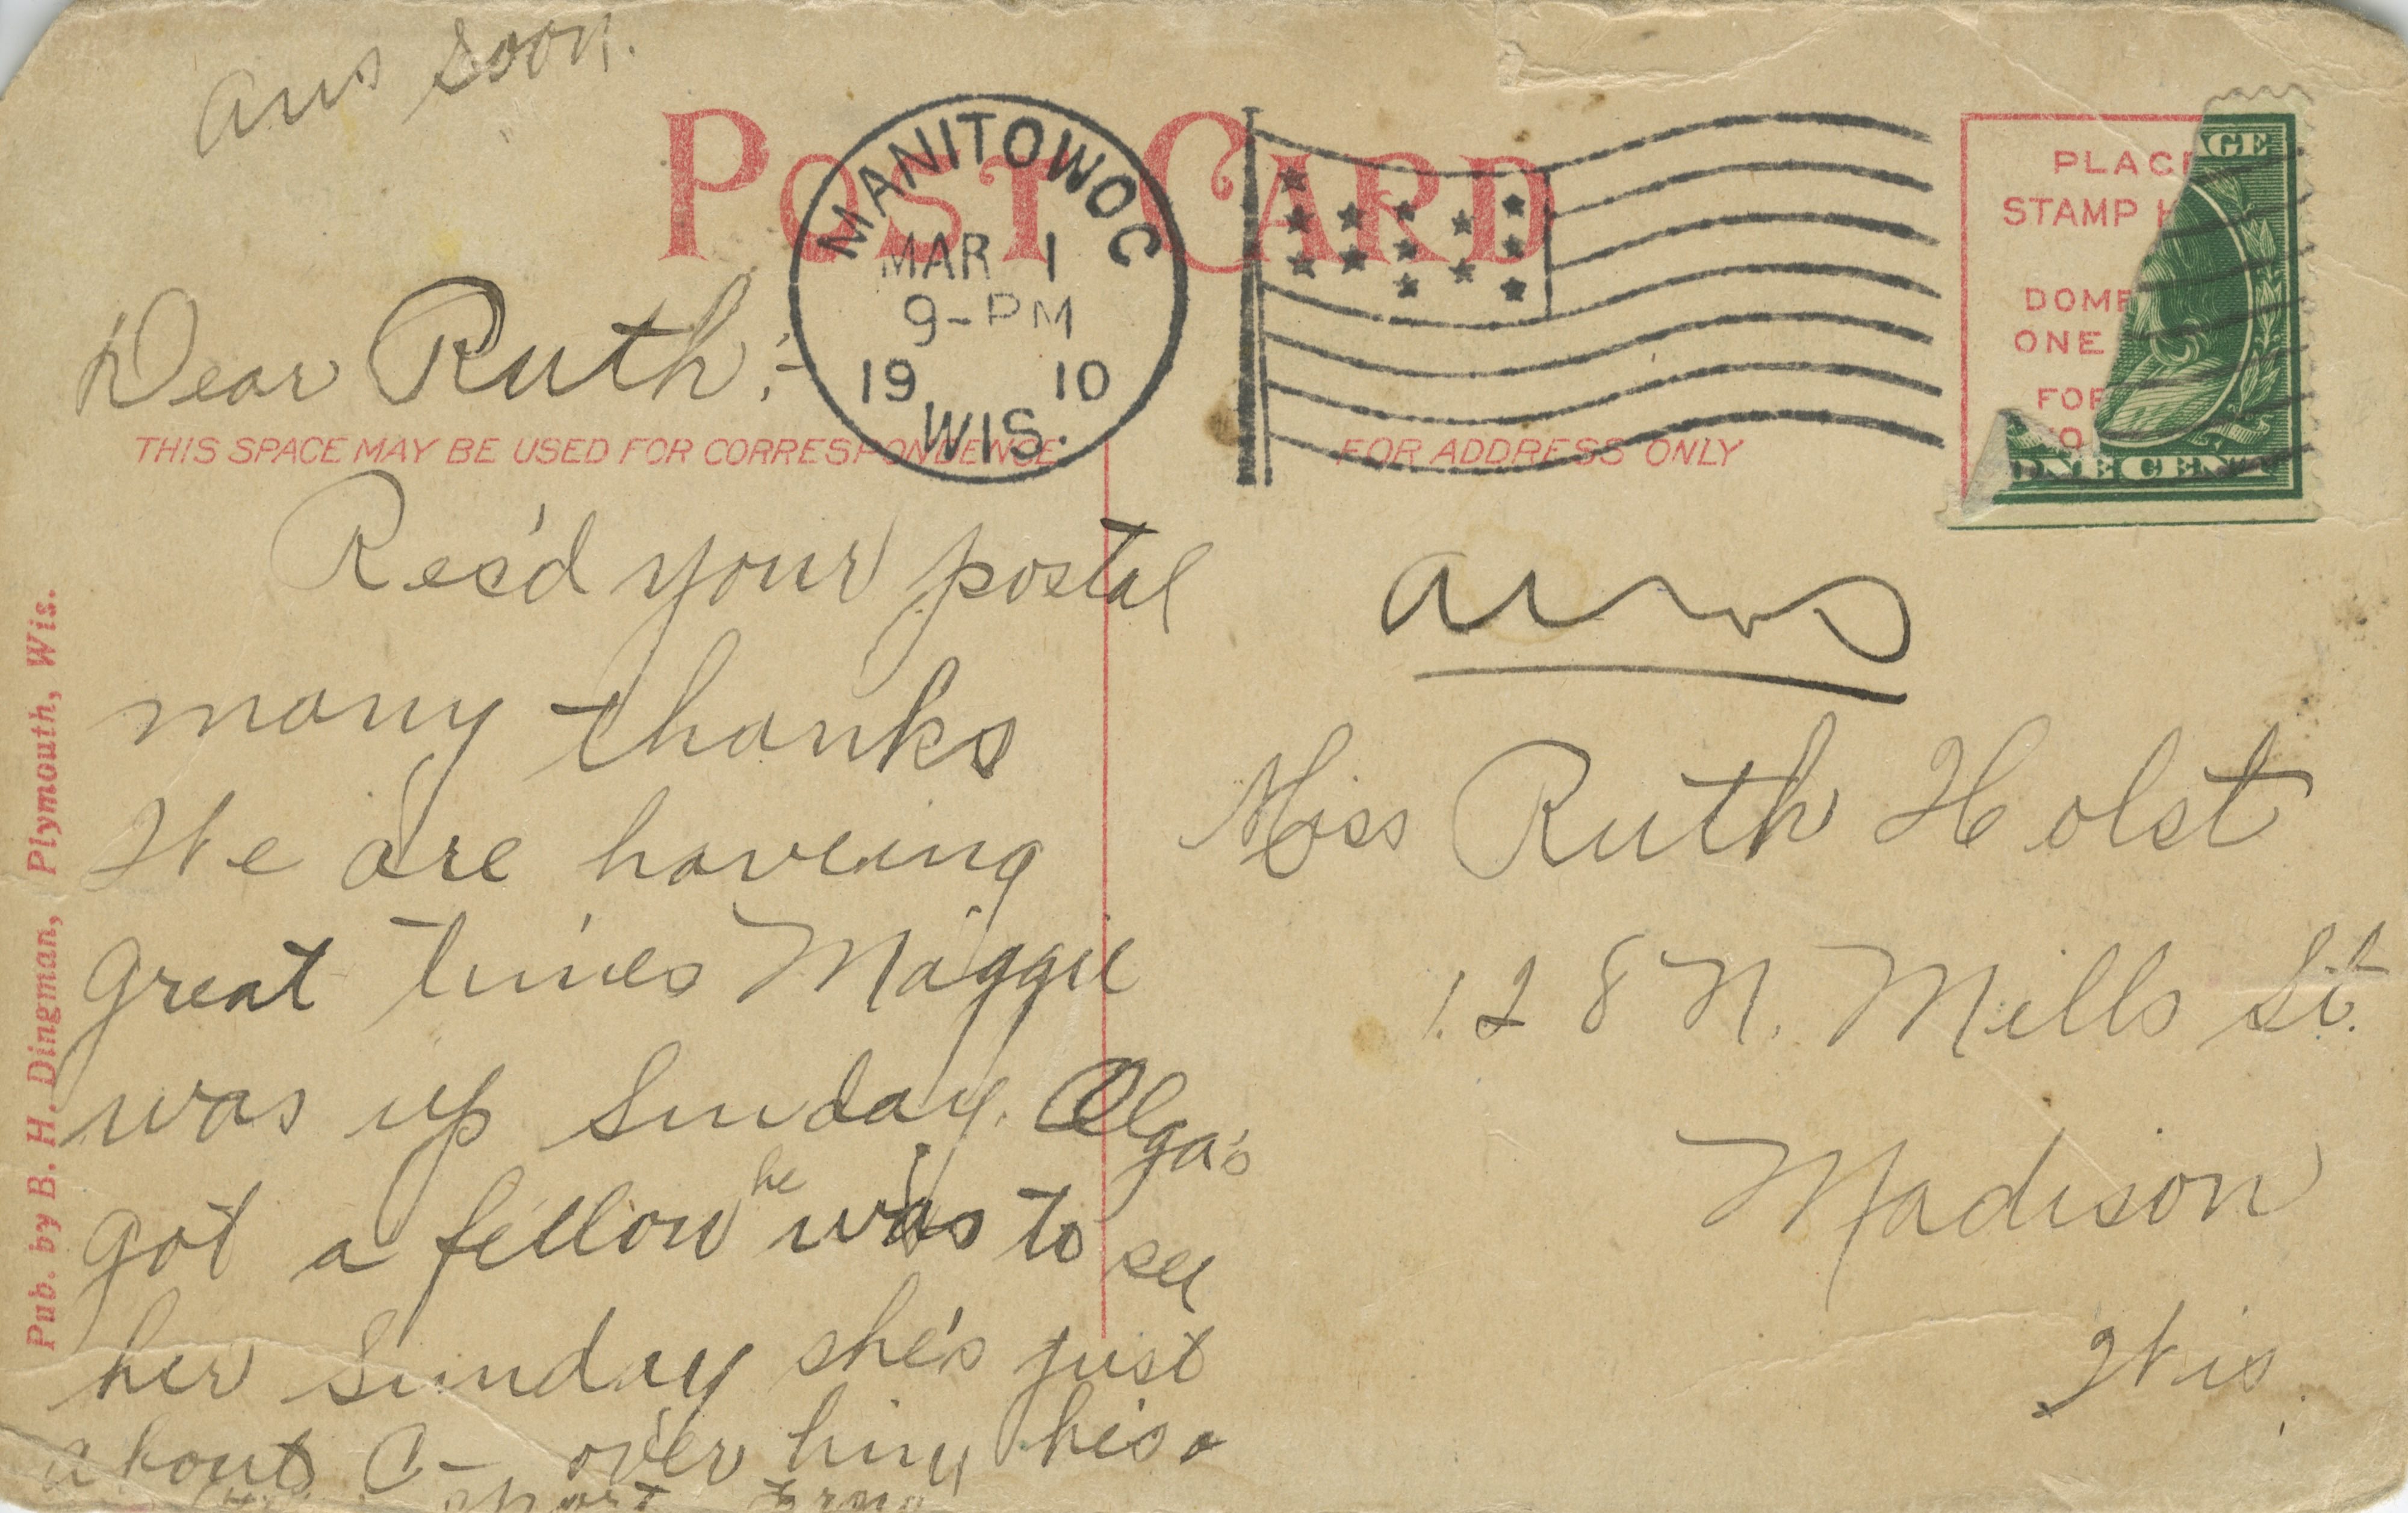 ans soon.
POST CARD
MANITOWOC
MAR 1
9-PM
19 10
WIS.
PLACE
STAMP H
DOME
ONE
FOR
AGE
ONE CENT
Dear Ruth:-
THIS SPACE MAY BE USED FOR CORRESPONDENCE
FOR ADDRESS ONLY
Rec'd your postal
many thanks
We are haveing
great times Maggie
was up Sunday. Olga's
got a fellow he was to see
her Sunday she's just
about C- over him he's a
short
ans
Miss Ruth Holst
128 N. Mills St.
Madison
Wis.
Pub. by B. H. Dingman, Plymouth, Wis.